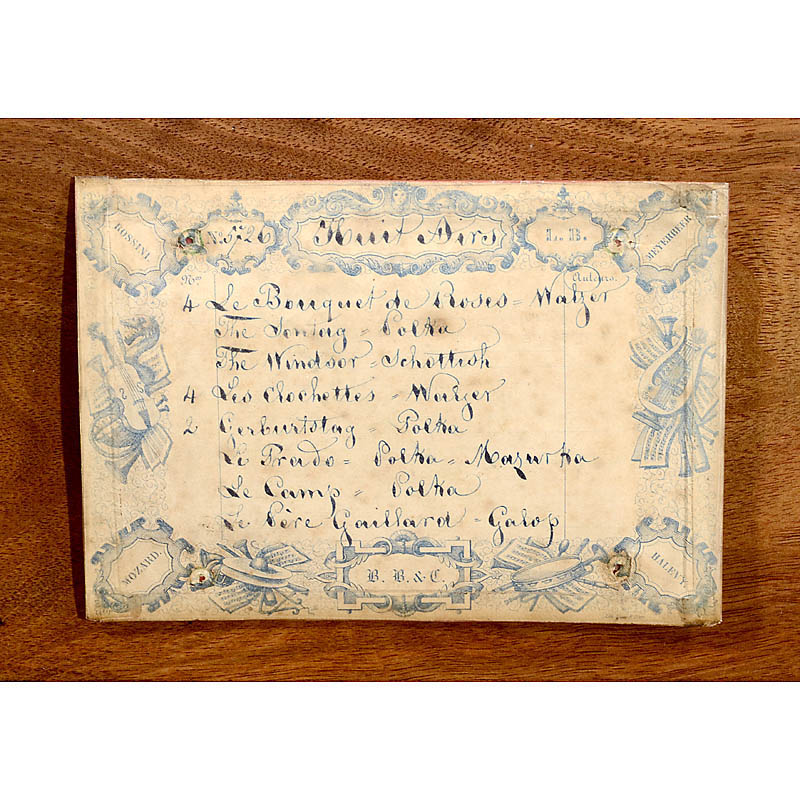 ROSSINI
No. 5726
Huit Airs
L. B.
MEYERBEER
Nos
Auteurs.
4 Le Bouquet de Roses = Walzer
The Sontag = Polka
The Windsor = Schottish
4 Les Clochettes = Walzer
2 Gerburtstag = Polka
Le Prado = Polka = Mazurka
Le Camp = Polka
Le Père Gaillard = Galop
MOZARD.
B. B. & C.
HALEVY.